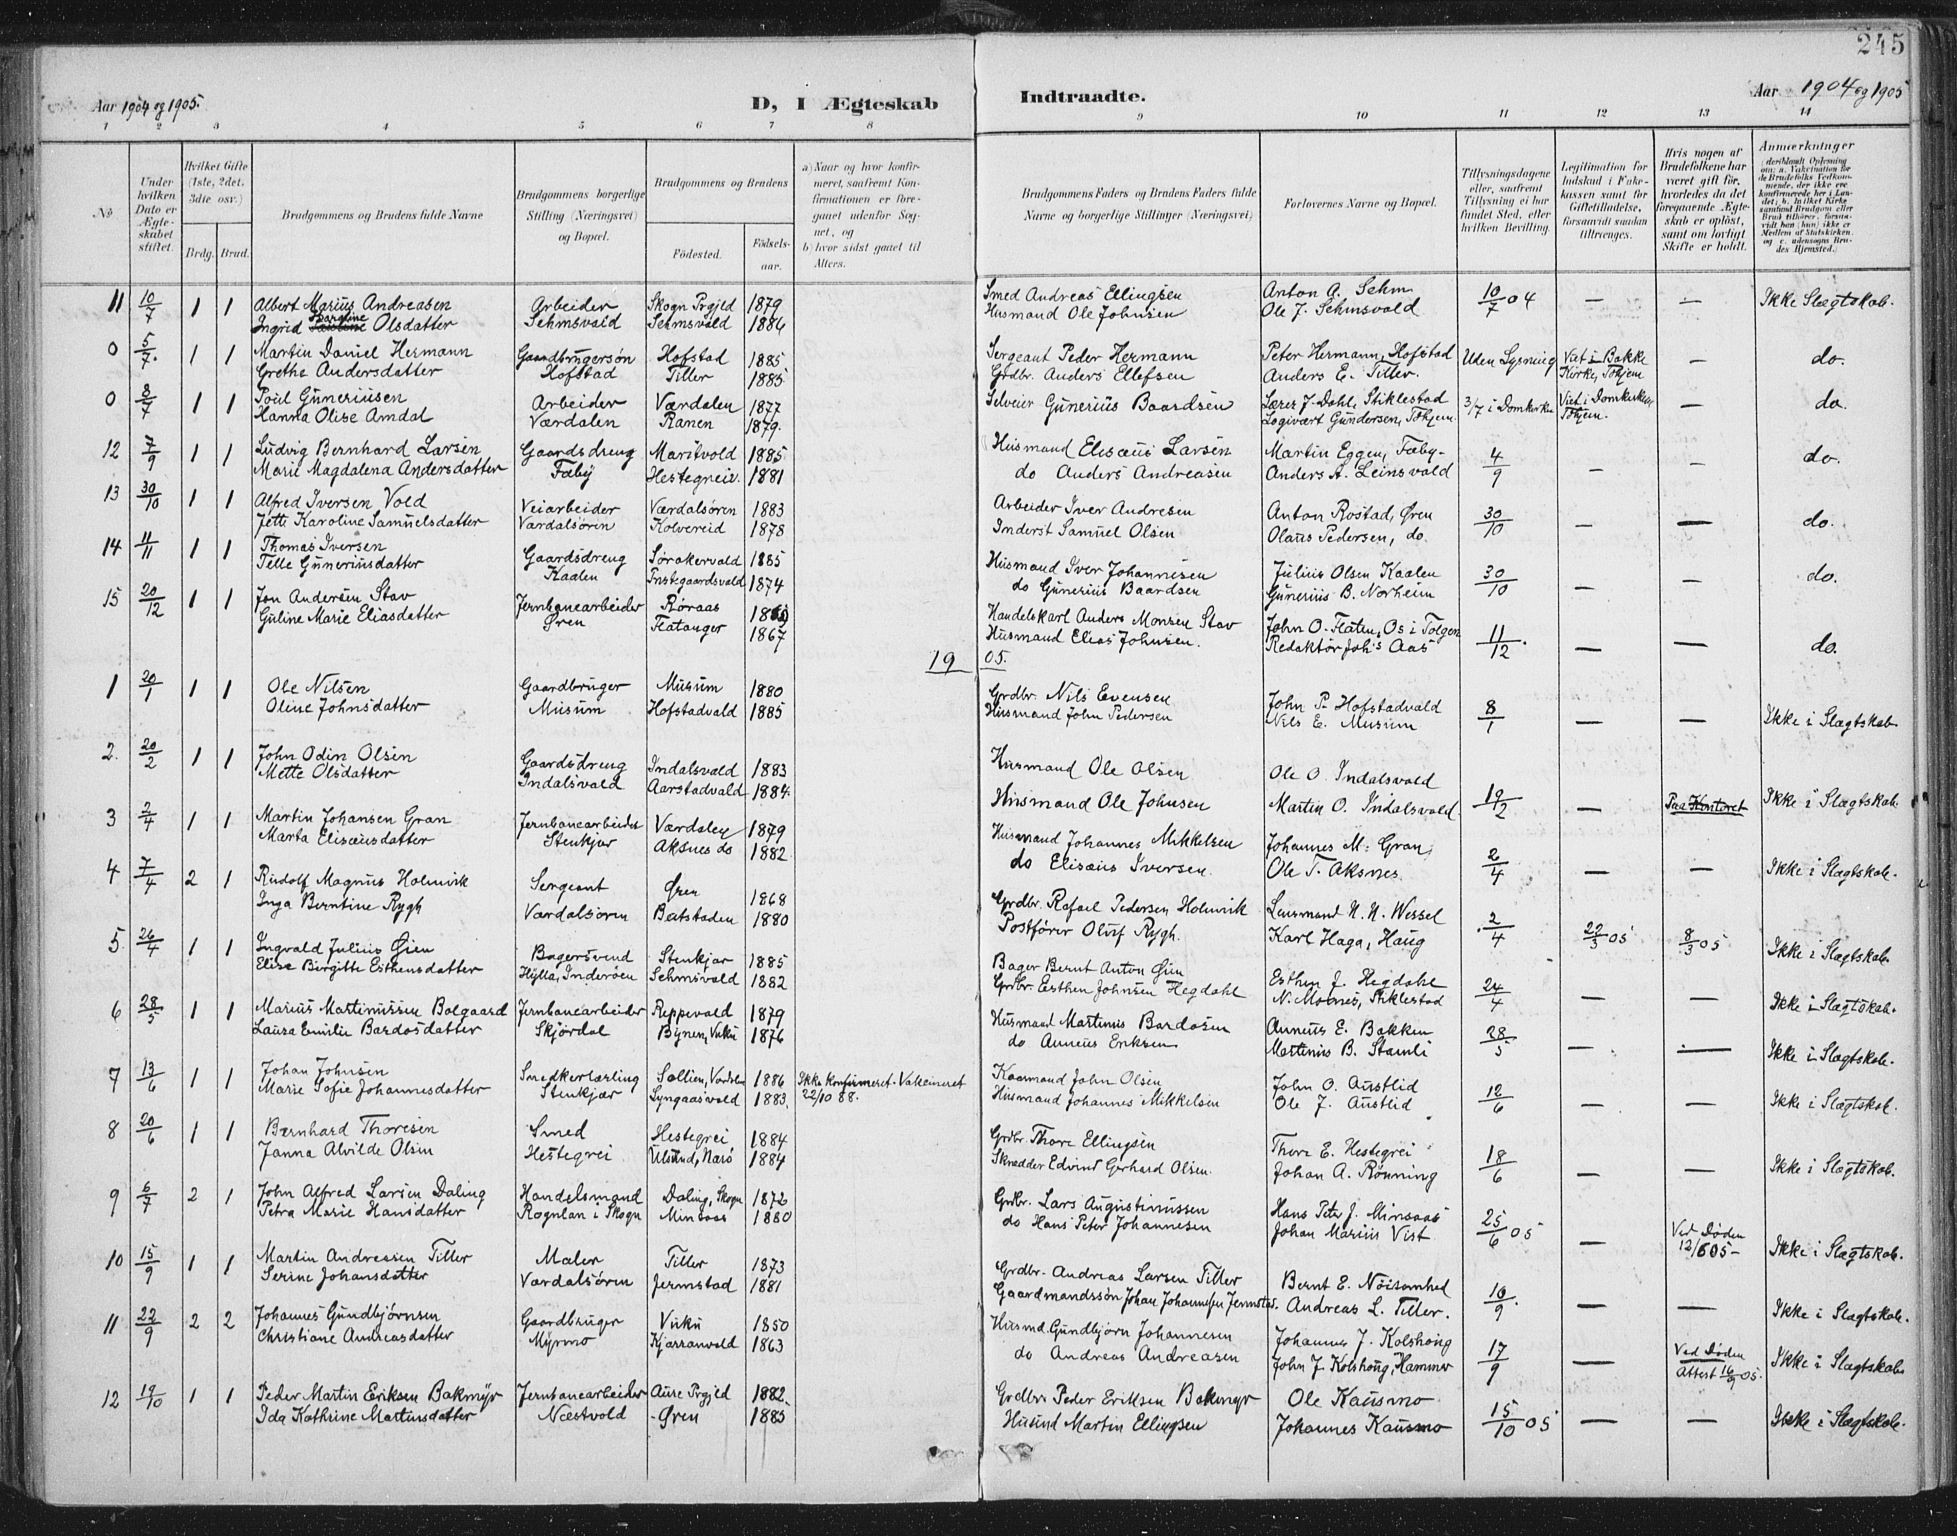 245
Aar 1904 og 1905. D, I Ægteskab Indtraadte. Aar 1904 og 1905
1 2 3 4 5 6 7 8 9 10 11 12 13 14
No Under hvilken Dato er Ægteskabet stiftet. Hvilket Gifte (1ste, 2det, 3die osv.) Brdg. Brud. Brudgommens og Brudens fulde Navne Brudgommens borgerlige Stilling (Næringsvei) og Bopæl. Brudgommens og Brudens Fødested. Fødselsaar. a) Naar og hvor konfirmeret, saafremt Konfirmationen er foregaaet udenfor Sognet, og b) hvor sidst gaaet til Alters. Brudgommens Faders og Brudens Faders fulde Navne og borgerlige Stillinger (Næringsvei) Forlovernes Navne og Bopæl. Tillysningsdagene eller, saafremt Tillysning ei har fundet Sted, efter hvilken Bevilling. Legitimation for Indskud i Enkekassen samt for Giftetilladelse, forsaavidt saadan tiltrænges. Hvis nogen af Brudefolkene har været gift før, hvorledes da det foregaaende Ægteskab er opløst, samt om lovligt Skifte er holdt. Anmærkninger
11 10/7 1 1 Albert Marius Andreasen Arbeider Skogn Prgjld 1879 Smed Andreas Ellingsen Anton A. Sehm 10/7 04 — — Ikke Slægtskab.
Ingrid Olsdatter Sehmsvald Sehmsvald 1886 Husmand Ole Johnsen Ole J. Sehmsvald
0 5/7. 1 1 Martin Daniel Hermann Gaardbrugersøn Hofstad 1885 Sergeant Peder Hermann Peter Hermann, Hofstad Uden Lysning Viet i Bakke — do.
Grethe Andersdatter Hofstad Tiller 1885 Grdbr. Anders Ellefsen Anders E. Tiller. Kirke, Tohjem
0 8/7 1 1 Poul Guneriusen Arbeider Værdalen 1877 Selveier Gunerius Baardsen Lærer J. Dahl, Stiklestad 3/7 i Domkirke Viet i Domkirken — do.
Hanna Olise Amdal Værdalen Ranen 1879. Logivært Gundersen, Tohjem Tohjem.
12 7/9 1 1 Ludvig Bernhard Larsen Gaardsdreng Maritvold 1885 Husmand Elisæus Larsen Martin Eggen, Fæby 4/9 — — do.
Marie Magdalena Andersdatter Fæby Hestegreiv. 1881 do Anders Andreasen Anders A. Leinsvald
13 30/10 1 1 Alfred Iversen Vold Veiarbeider Værdalsøren 1883 Arbeider Iver Andresen Anton Rostad, Øren 30/10 — — do.
Jette Karoline Samuelsdatter Værdalsøren Kolvereid 1878 Inderst Samuel Olsen Olaus Pedersen, do.
14 11/11 1 1 Thomas Iversen Gaardsdreng Sørakervald 1885 Husmand Iver Johannesen Julius Olsen Kaalen 30/10 — — do.
Telle Guneriusdatter Kaalen 1874 do Gunerius Baardsen Gunerius B. Norheim
15 20/12 1 1 Jon Andersen Stav Jernbanearbeider Røraas Handelskarl Anders Monsen Stav John O. Flaten, Os i Tolgen 11/12. — — do.
Guline Marie Eliasdatter Øren Flatanger 1867 Husmand Elias Johnsen. Redaktør Joh's Aas
1905.
1 20/1 1 1 Ole Nilsen Gaardbruger Musum 1880 Grdbr. Nils Evensen John P. Hofstadvald 8/1 — — Ikke i Slægtskab.
Oline Johnsdatter Musum Hofstadvald 1885 Husmand John Pedersen Nils E. Musum
2. 20/2 1 1 John Odin Olsen Gaardsdreng Indalsvald 1883 Husmand Ole Olsen Ole O. Indalsvald 19/2 — Paa Kontoret Ikke i Slægtskab.
Mette Olsdatter Indalsvald Aarstadvald 1884. Husmand Ole Johnsen Martin O. Indalsvald.
3 2/4 1 1 Martin Johansen Gran Jernbanearbeider Værdalen 1879 Husmand Johannes Mikkelsen Johannes M. Gran 2/4 — — Ikke i Slægtskab.
Marta Elisæusdatter Stenkjær Aksnes do 1882 do Elisæus Iversen. Ole T. Aksnes
4 7/4 2 1 Rudolf Magnus Holmvik Sergeant Øren 1868 Grdbr. Rafael Pedersen Holmvik Lensmand N. N. Wessel 2/4 22/3 05 8/3 05 Ikke i Slægtskab.
Inga Berntine Rygh Værdalsøren Batstaden 1880 Postfører Oluf Rygh. Karl Haga, Haug
5. 26/4 1 1 Ingvald Julius Øien Bagersvend Stenkjær 1885 Bager Bernt Anton Øien Esthen J. Hegdahl 24/4 — — Ikke i Slægtskab.
Elise Birgitte Esthensdatter Hylla, Inderøen Sehmsvald 1882 Grdbr. Esthen Johnsen Hegdahl N. Moknes, Stiklestad
6 28/5 1 1 Marius Martinussen Bolgaard Jernbanearbeider Reppevald 1879 Husmand Martinus Bardosen Anneus E. Bakken 28/5 — — Ikke i Slægtskab.
Laura Emilie Bardosdatter Skjørdal Bynen, Vuku 1876 do Anneus Eriksen Martinus B. Stamli
7 13/6 1 1 Johan Johnsen Smedkerlærling Sollien, Værdalen 1886 Ikke konfirmeret. Vakcineret Kaarmand John Olsen John O. Austlid 12/6 — — Ikke i Slægtskab.
Marie Sofie Johannesdatter Stenkjær Lyngaasvald 1883. 22/10 88. Husmand Johannes Mikkelsen Ole J. Austlid
8 20/6 1 1 Bernhard Thoresen Smed Hestegrei 1884 Grdbr. Thore Ellingsen Thore E. Hestegrei 18/6 — — Ikke i Slægtskab.
Janna Alvilde Olsen Hestegrei Ulsund, Nærø 1884 Skrædder Edvind Gerhard Olsen. Johan A. Rønning
9 6/7 2 1 John Alfred Larsen Daling Handelsmand Daling, Skogn 1872 Grdbr. Lars Augustinussen Hans Peter J. Minsaas 25/6 05 — Ved Døden Ikke i Slægtskab.
Petra Marie Hansdatter Rognlan i Skogn Minsaas 1880 do Hans Peter Johannesen Johan Marius Vist 12/6 05 —
10 15/9 1 1 Martin Andreasen Tiller Maler Tiller 1873 Grdbr. Andreas Larsen Tiller Bernt E. Nøisomhed 10/9. — — Ikke i Slægtskab.
Serine Johansdatter Værdalsøren Jermstad 1881 Gaardmandssøn Johan Johannesen Jermstad. Andreas L. Tiller.
11 22/9 2 2 Johannes Gundbjørnsen Gaardbruger Vuku 1850 Husmd. Gundbjørn Johannesen Johannes J. Kolshoug 17/9 — Ved Døden Ikke i Slægtskab.
Christiane Andreasdatter Myrmo Kjærranvald 1863 do Andreas Andreasen John J. Kolshoug, Hammer Attest 16/9 05.
12 19/10 1 1 Peder Martin Eriksen Bakmyr Jernbanearbeider Aure Prgjld 1882. Grdbr. Peder Eriksen Bakmyr Ole Kausmo 15/10 05 — — Ikke i Slægtskab.
Ida Kathrine Martinsdatter Næstvold Øren 1883 Husmd Martin Ellingsen Johannes Kausmo